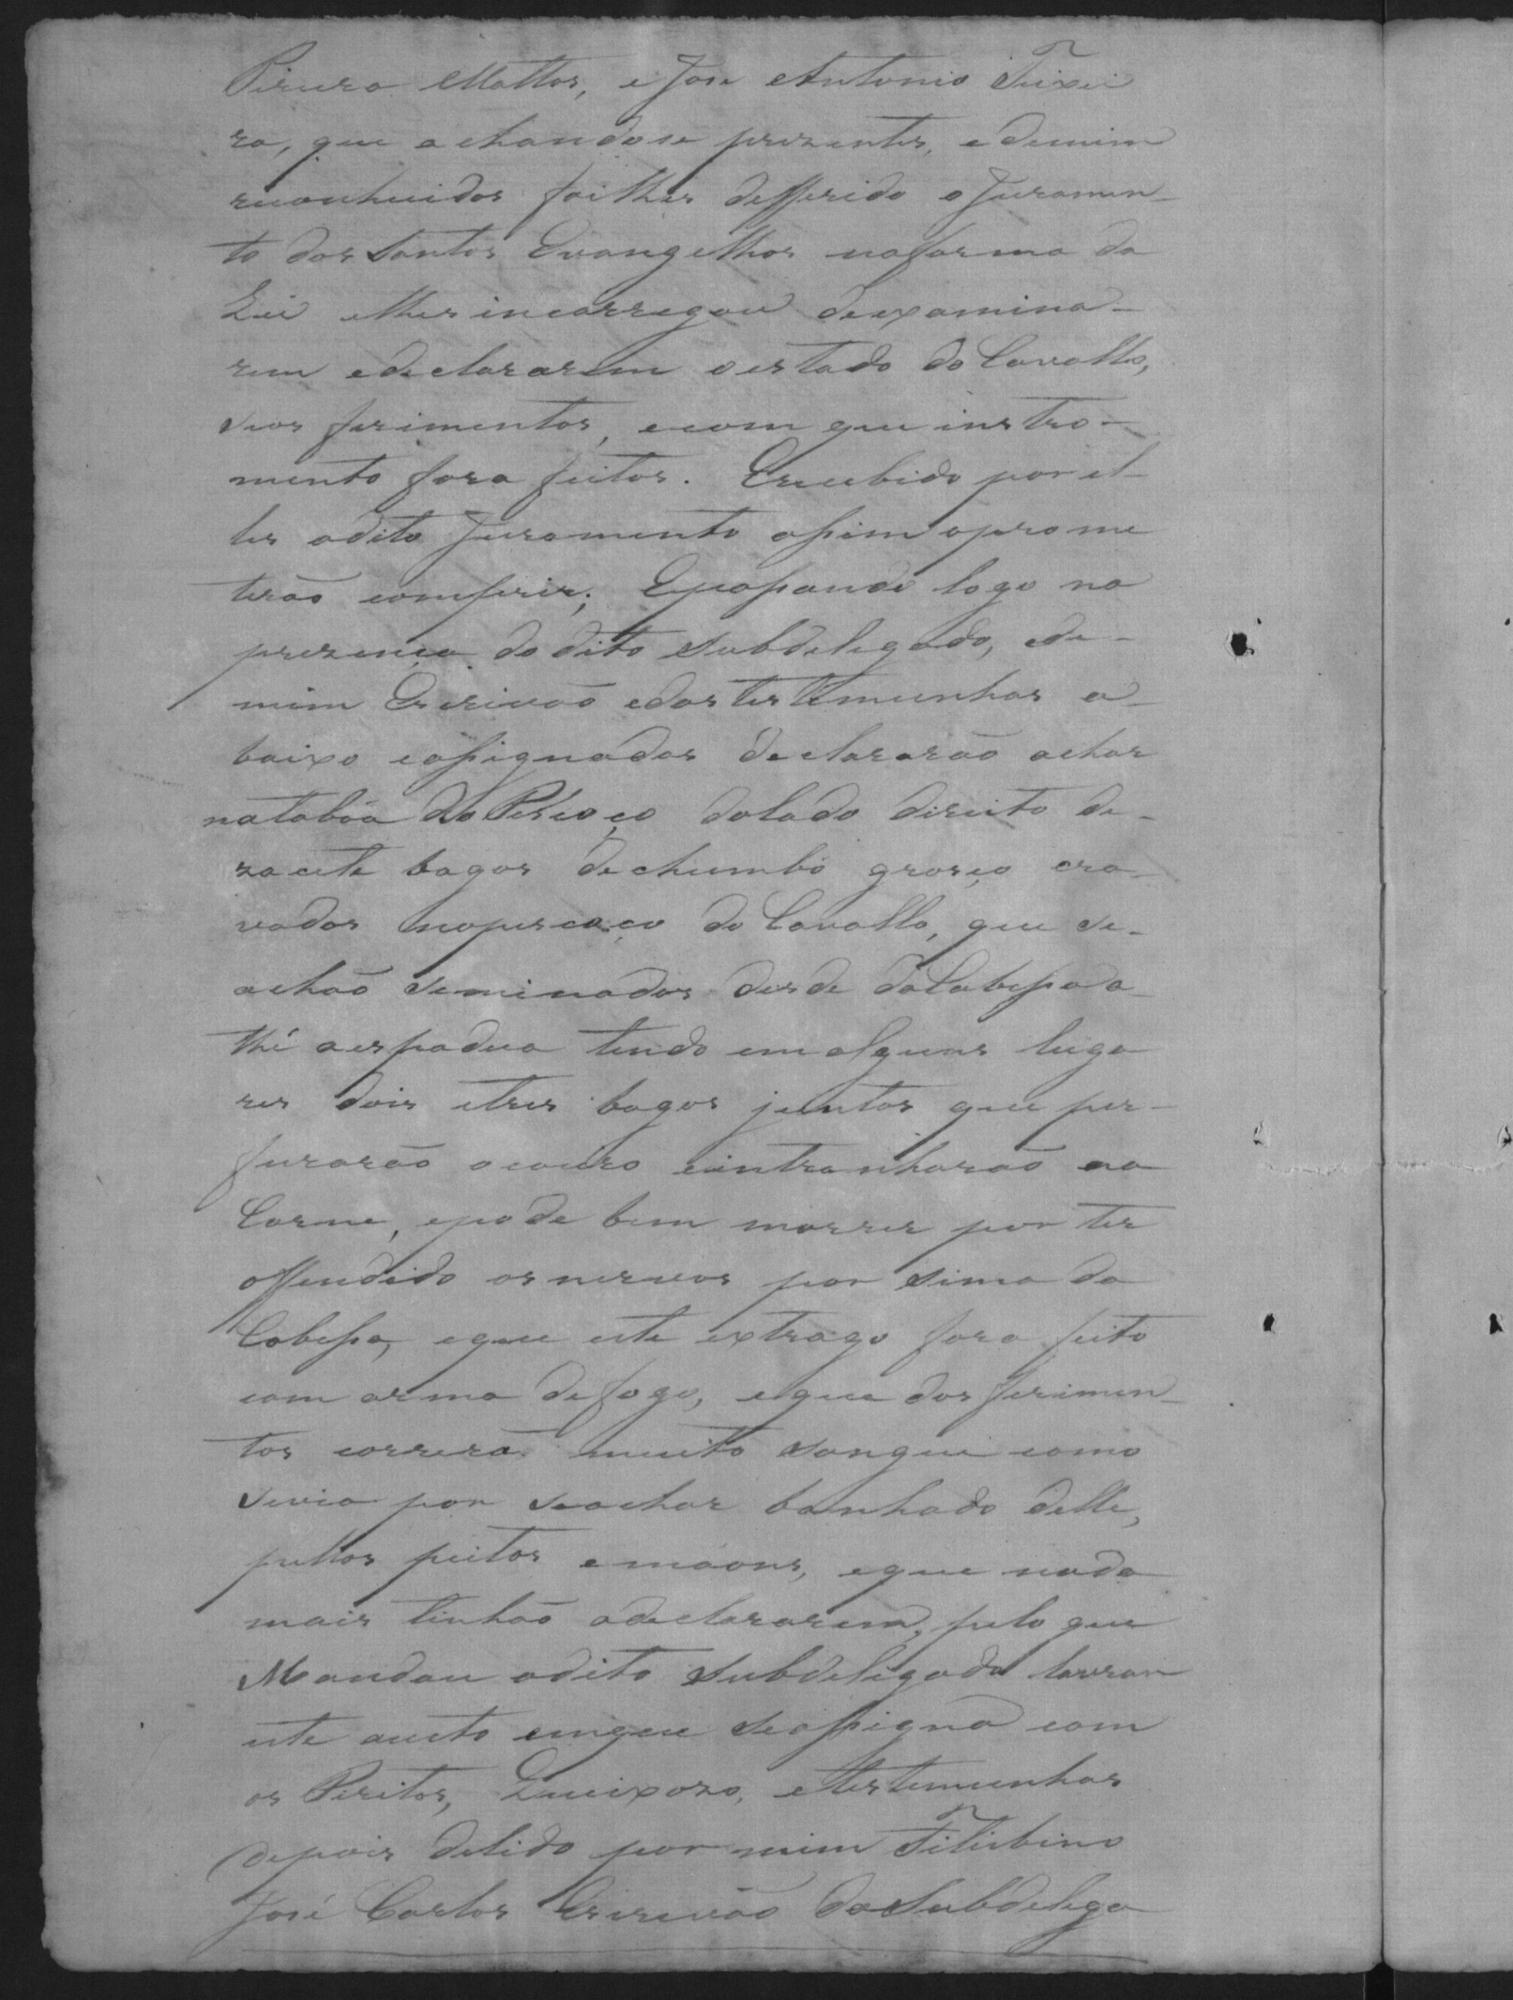 Pereira Mattos, e Jose Antonio Teixei
ra, que achandose prezentes, e demim
reconhecidos foilhes defferido o Juramen-
to dos Santos Evangelhos naforma da
Lei elhes incarregou deexamina-
rem edeclararem oestado do Cavallo,
seos ferimentos, ecom que instro-
mento fora feitos. Erecebido por el-
les odito Juramento assim oprome
terão comferir; Epassando logo na
prezença do dito Subdelegado, ede-
mim Escrivão edas testemunhas a-
baixo eassignadas declararão achar
nataboa do Péscoço dolado direito de-
zacete bagos dechumbo groszo cra-
vados nopescoço do Cavallo, que se-
achão seminados desde daCabessa a-
thé aespadua tendo em alguns luga
res dois etres bagos juntos que per-
furarão ocouro eintranharão na
Carne, epode bem morrer por ter
offendido osnervos por sima da
Cabessa, eque este extrago fora feito
com arma defogo, eque dos ferimen-
tos correra muito sangue como
sevia por seachar banhado delle,
pellos peitos emãons, eque nada
mais tinhão adeclararem, pelo que
Mandou odito Subdelegado lavrar
este aucto emque seassigna com
os Peritos, Queixozo, etestemunhas
depois delido por mim
José Carlos Escrivão daSubdelega